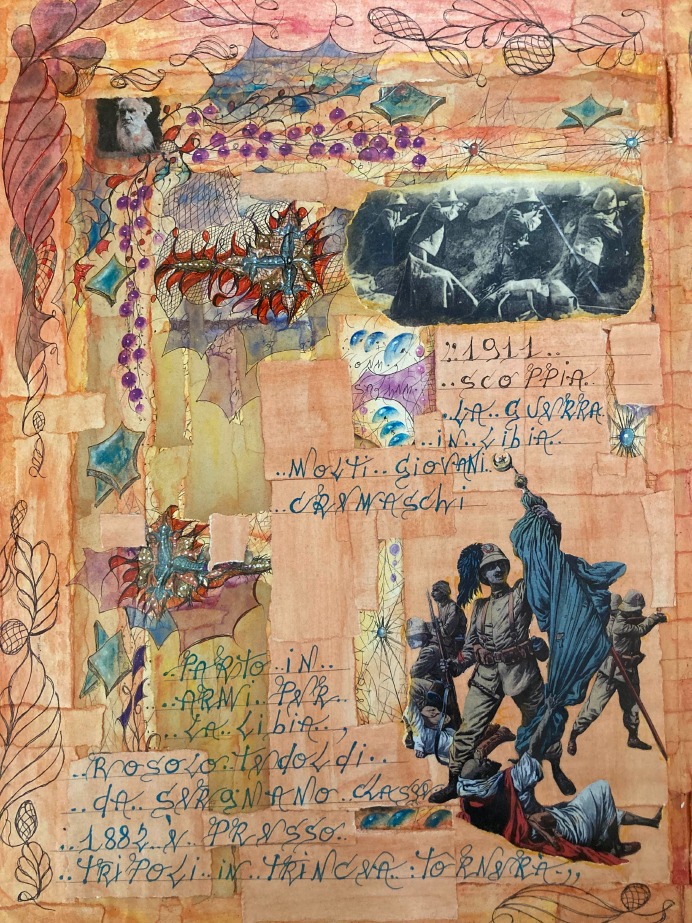 :1911..
..SCOPPIA..
..LA..GUERRA
..IN..LIBIA..
..MOLTI..GIOVANI..
..CREMASCHI
..PARTO..IN..
..ARMI..PER..
..LA..LIBIA..,
..ROSOLO..TEDOLDI..
..DA..SERGNANO..CLASSE
:1882..È..PRESSO..
..TRIPOLI..IN..TRINCEA..:TORNERA..,,